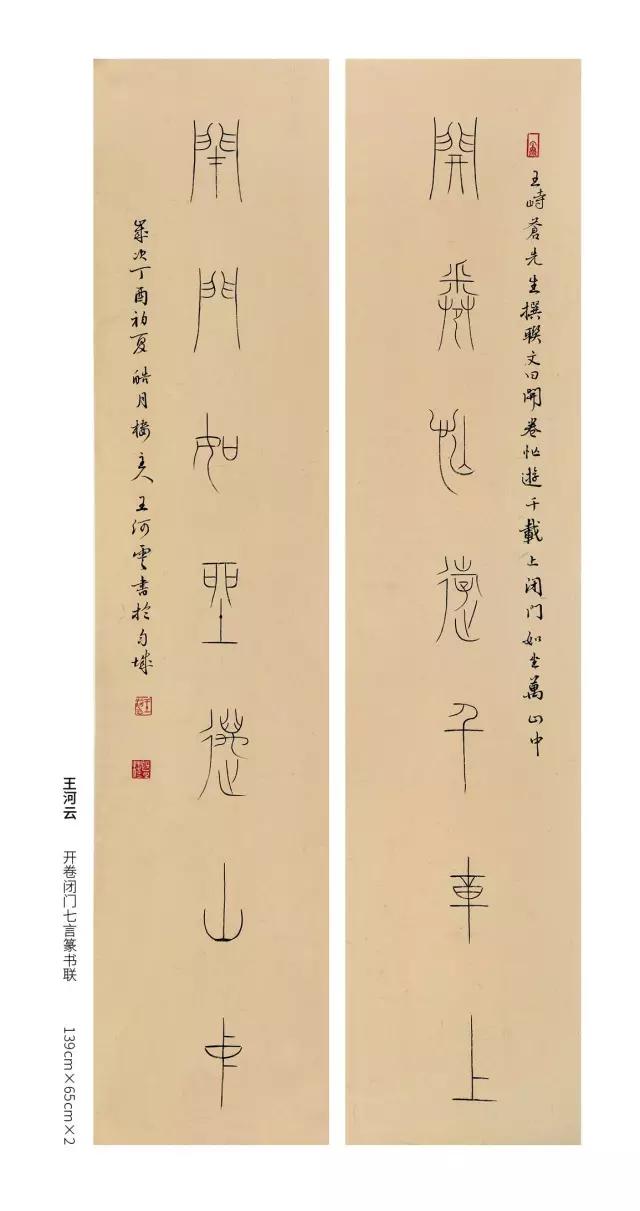 王峙蒼先生撰聯文曰開卷遊千載上闭门如坐萬山中
開卷遊千上
閉門如坐萬山中
歲次丁酉初夏皓月樓主人王河雲書於城
王河云 开卷闭门七言篆书联 139cm×65cm×2